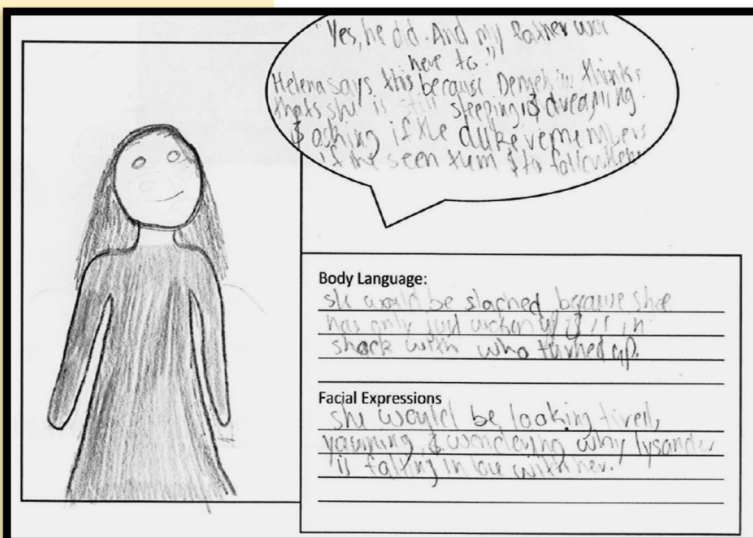 "Yes, he did. And my father was
here to."
Helena says this because Demetrius thinks
thats she is still sleeping & dreaming.
& asking if the duke remembers
if he seen them & to follow
Body Language:
she would be slached because shee
has only just up & is in
shock with who turned up.
Facial Expressions
she would be looking tired,
yawning, & wondering why lysander
is falling in love with her.